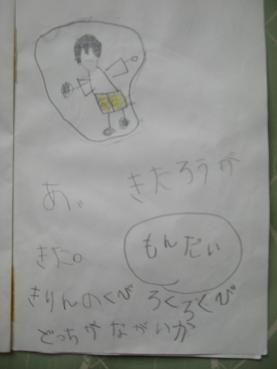 あ、 きたろうが
きた。
もんだい
きりんのくび ろくろくび
どっちがながいか